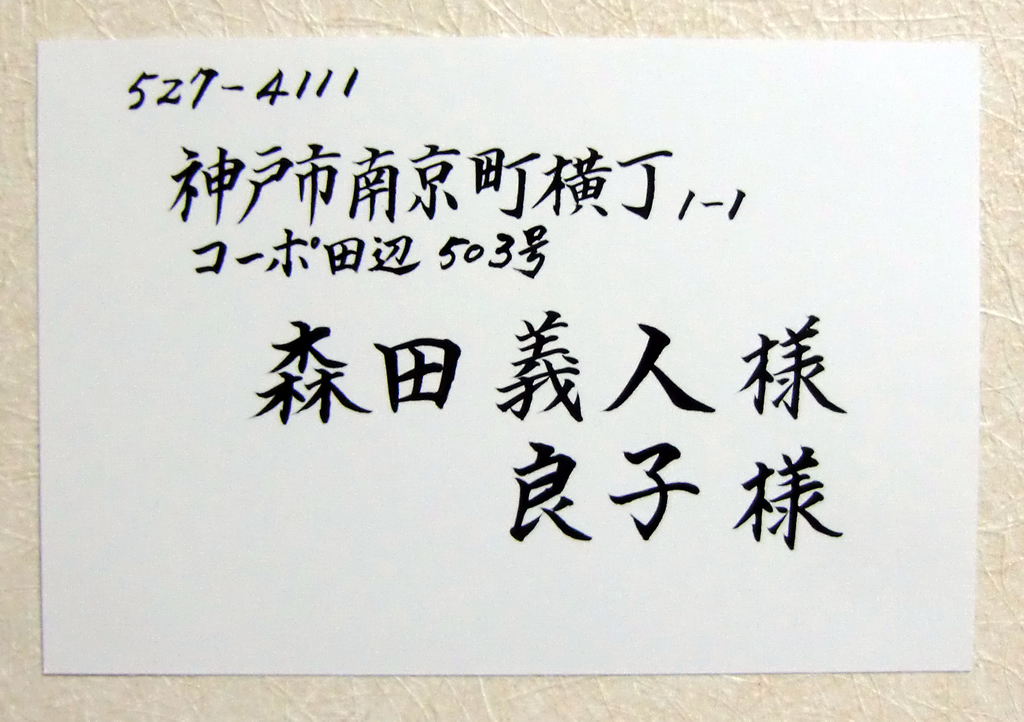 527-4111
神戸市南京町横丁1-1
コーポ田辺 503号
森田義人様
良子様